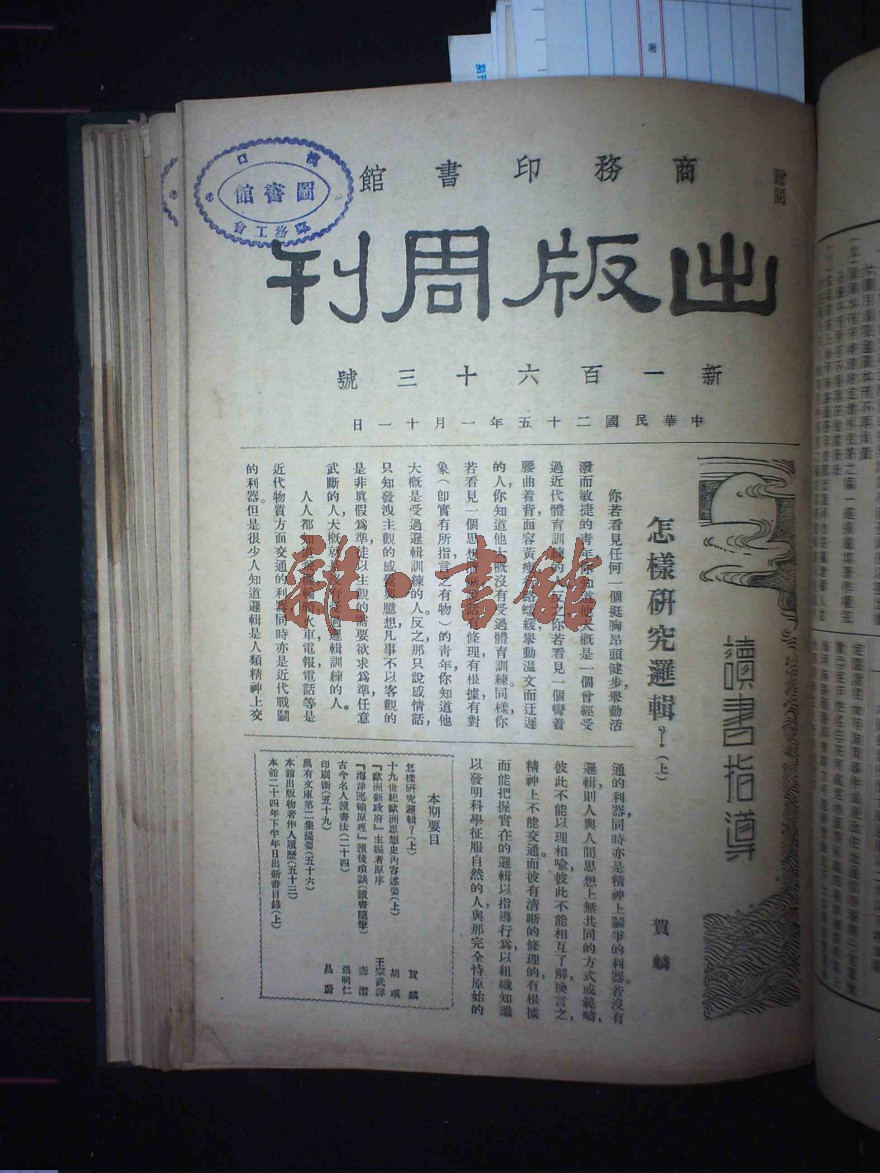 贈閱
商務印書館
出版周刊
新一百六十三號
中華民國二十五年一月十一日
圖書館
郵務工會
讀書指導
怎樣研究邏輯?(上)
賀麟
你若看見任何一個挺胸昂頭健步,舉動活
潑而敏捷的青年,你知道他大概是一個曾經受
過近代體育訓練的人。反之你若看見一個彎着
腰曲着背面容黃瘦,舉動溫文而迂遲
的人,你知道他大概沒有受過體育訓練。同樣,你
若看見一個思想有條理有根據有對
象(即實有所指言之有物)的青年,你知道他
大概是受過邏輯訓練的人。反之,那只說感情話,
只知發洩主觀的感臆想,凡事不以客觀的
是非真假爲準,徒以主觀的需要欲求爲準,任意
武斷的人,大概就是沒有受過邏輯訓練的人。
人人都知道火車電報電話等是
近代物質方面交通的利器,同時亦是近代戰鬬
的利器。但是很少人知道邏輯是人類精神上交
通的利器,同時亦是精神上鬬爭的利器。若沒有
邏輯,則人與人間思想上無共同的方式或範疇,
彼此不能以理相喻,彼此不能相互了解,換言之,
精神上不能交通。而彼有清晰的條理的有根據
而能把握實在的邏輯以指導行爲以組織知識
以發明科學征服自然的人,與那完全恃原始的
本期要目
怎樣研究邏輯?(上) 賀麟
十九世紀歐洲思想史內容述要(上) 胡瑛
『歐洲新政府』主編者原序 王宗武譯
『海洋運輸原理』讀後瑣談(讀書隨筆) 壽湝
古今名人讀書法(二十四) 張明仁
印刷術(五十九) 昌蔚
萬有文庫第二集提要(五十六)
本館出版物著作人履歷(五十三)
本館二十四年下半年日出新書目錄(上)
雜·書館